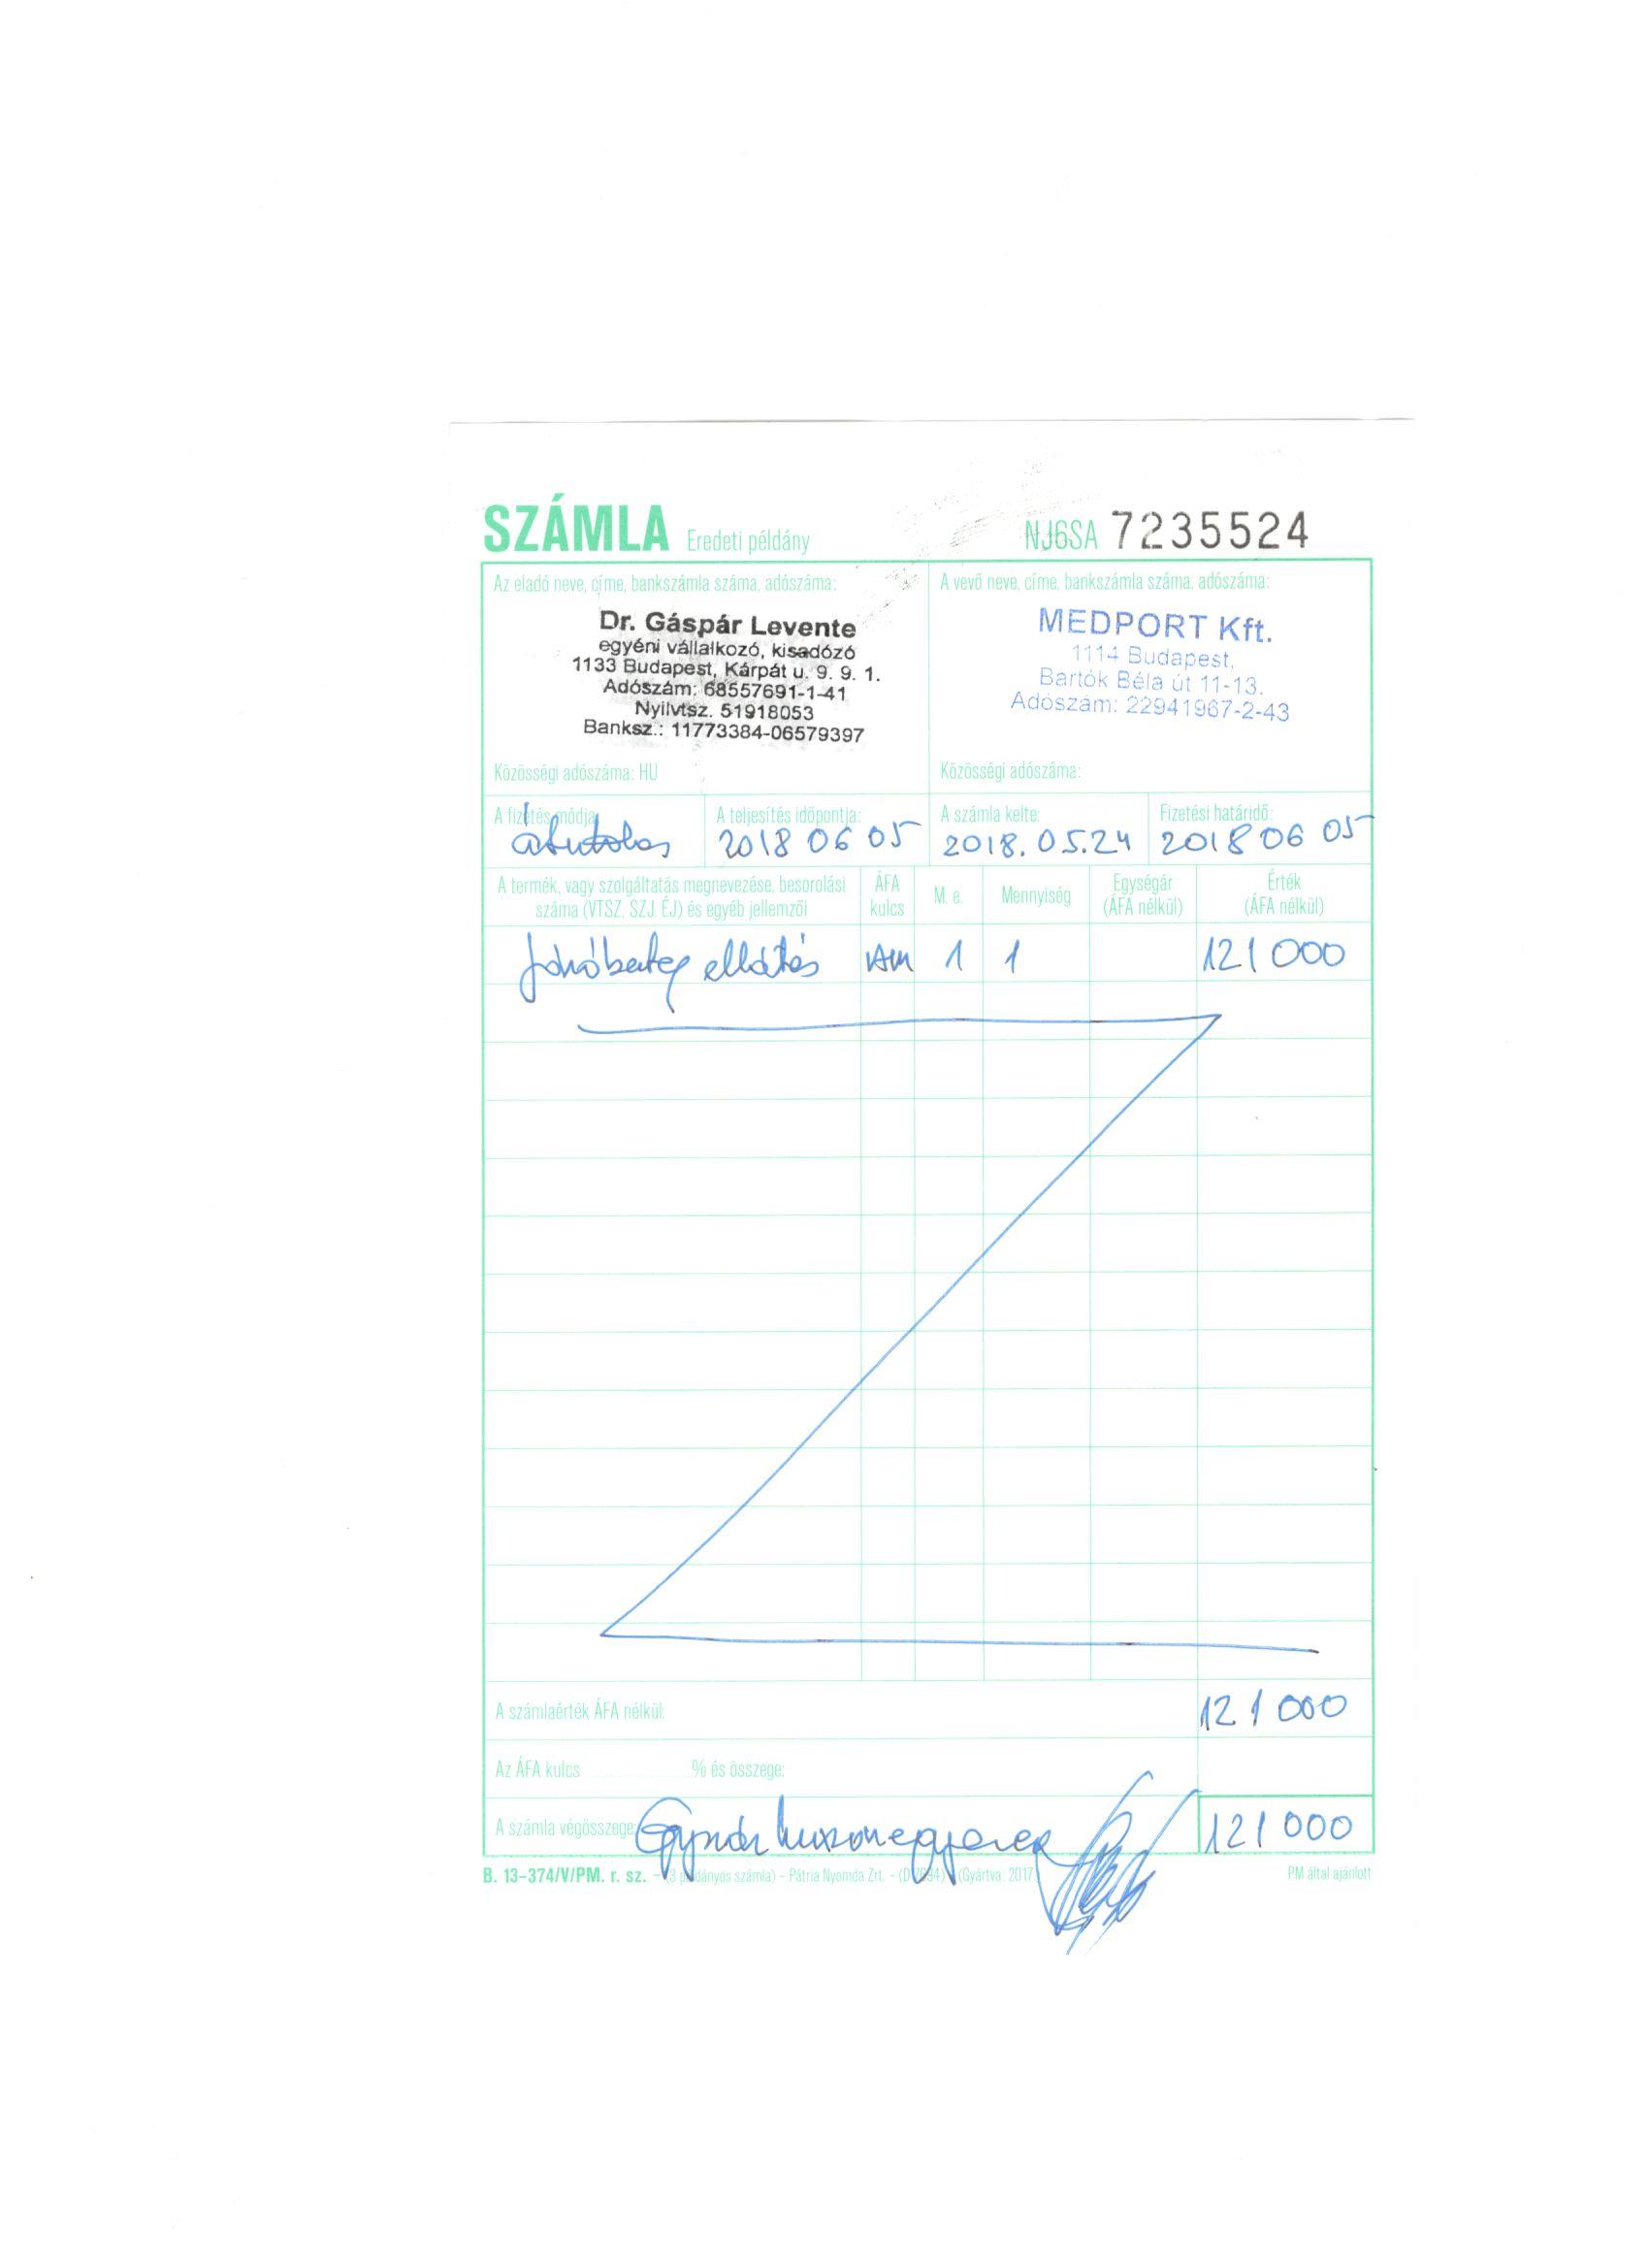 SZÁMLA Eredeti példány NJ6SA 7235524
Az eladó neve, címe, bankszámla száma, adószáma:
Dr. Gáspár Levente
egyéni vállalkozó, kisadózó
1133 Budapest, Kárpát u. 9. 9. 1.
Adószám: 68557691-1-41
Nyilvtsz. 51918053
Banksz.: 11773384-06579397
Közösségi adószáma: HU
A vevő neve, címe, bankszámla száma, adószáma:
MEDPORT Kft.
1114 Budapest,
Bartók Béla út 11-13.
Adószám: 22941967-2-43
Közösségi adószáma:
A fizetés módja
átutalás
A teljesítés időpontja:
2018 06 05
A számla kelte:
2018.05.24
Fizetési határidő:
2018 06 05
A termék, vagy szolgáltatás megnevezése, besorolási
száma (VTSZ, SZJ, ÉJ) és egyéb jellemzői
ÁFA
kulcs
M. e.
Mennyiség
Egységár
(ÁFA nélkül)
Érték
(ÁFA nélkül)
Járóbeteg ellátás AM 1 1 121 000
A számlaérték ÁFA nélkül: 121 000
Az ÁFA kulcs % és összege:
A számla végösszege: 121 000
B. 13-374/V/PM. r. sz. – (3 példányos számla) – Pátria Nyomda Zrt. – (Gyártva: 2017. PM által ajánlott